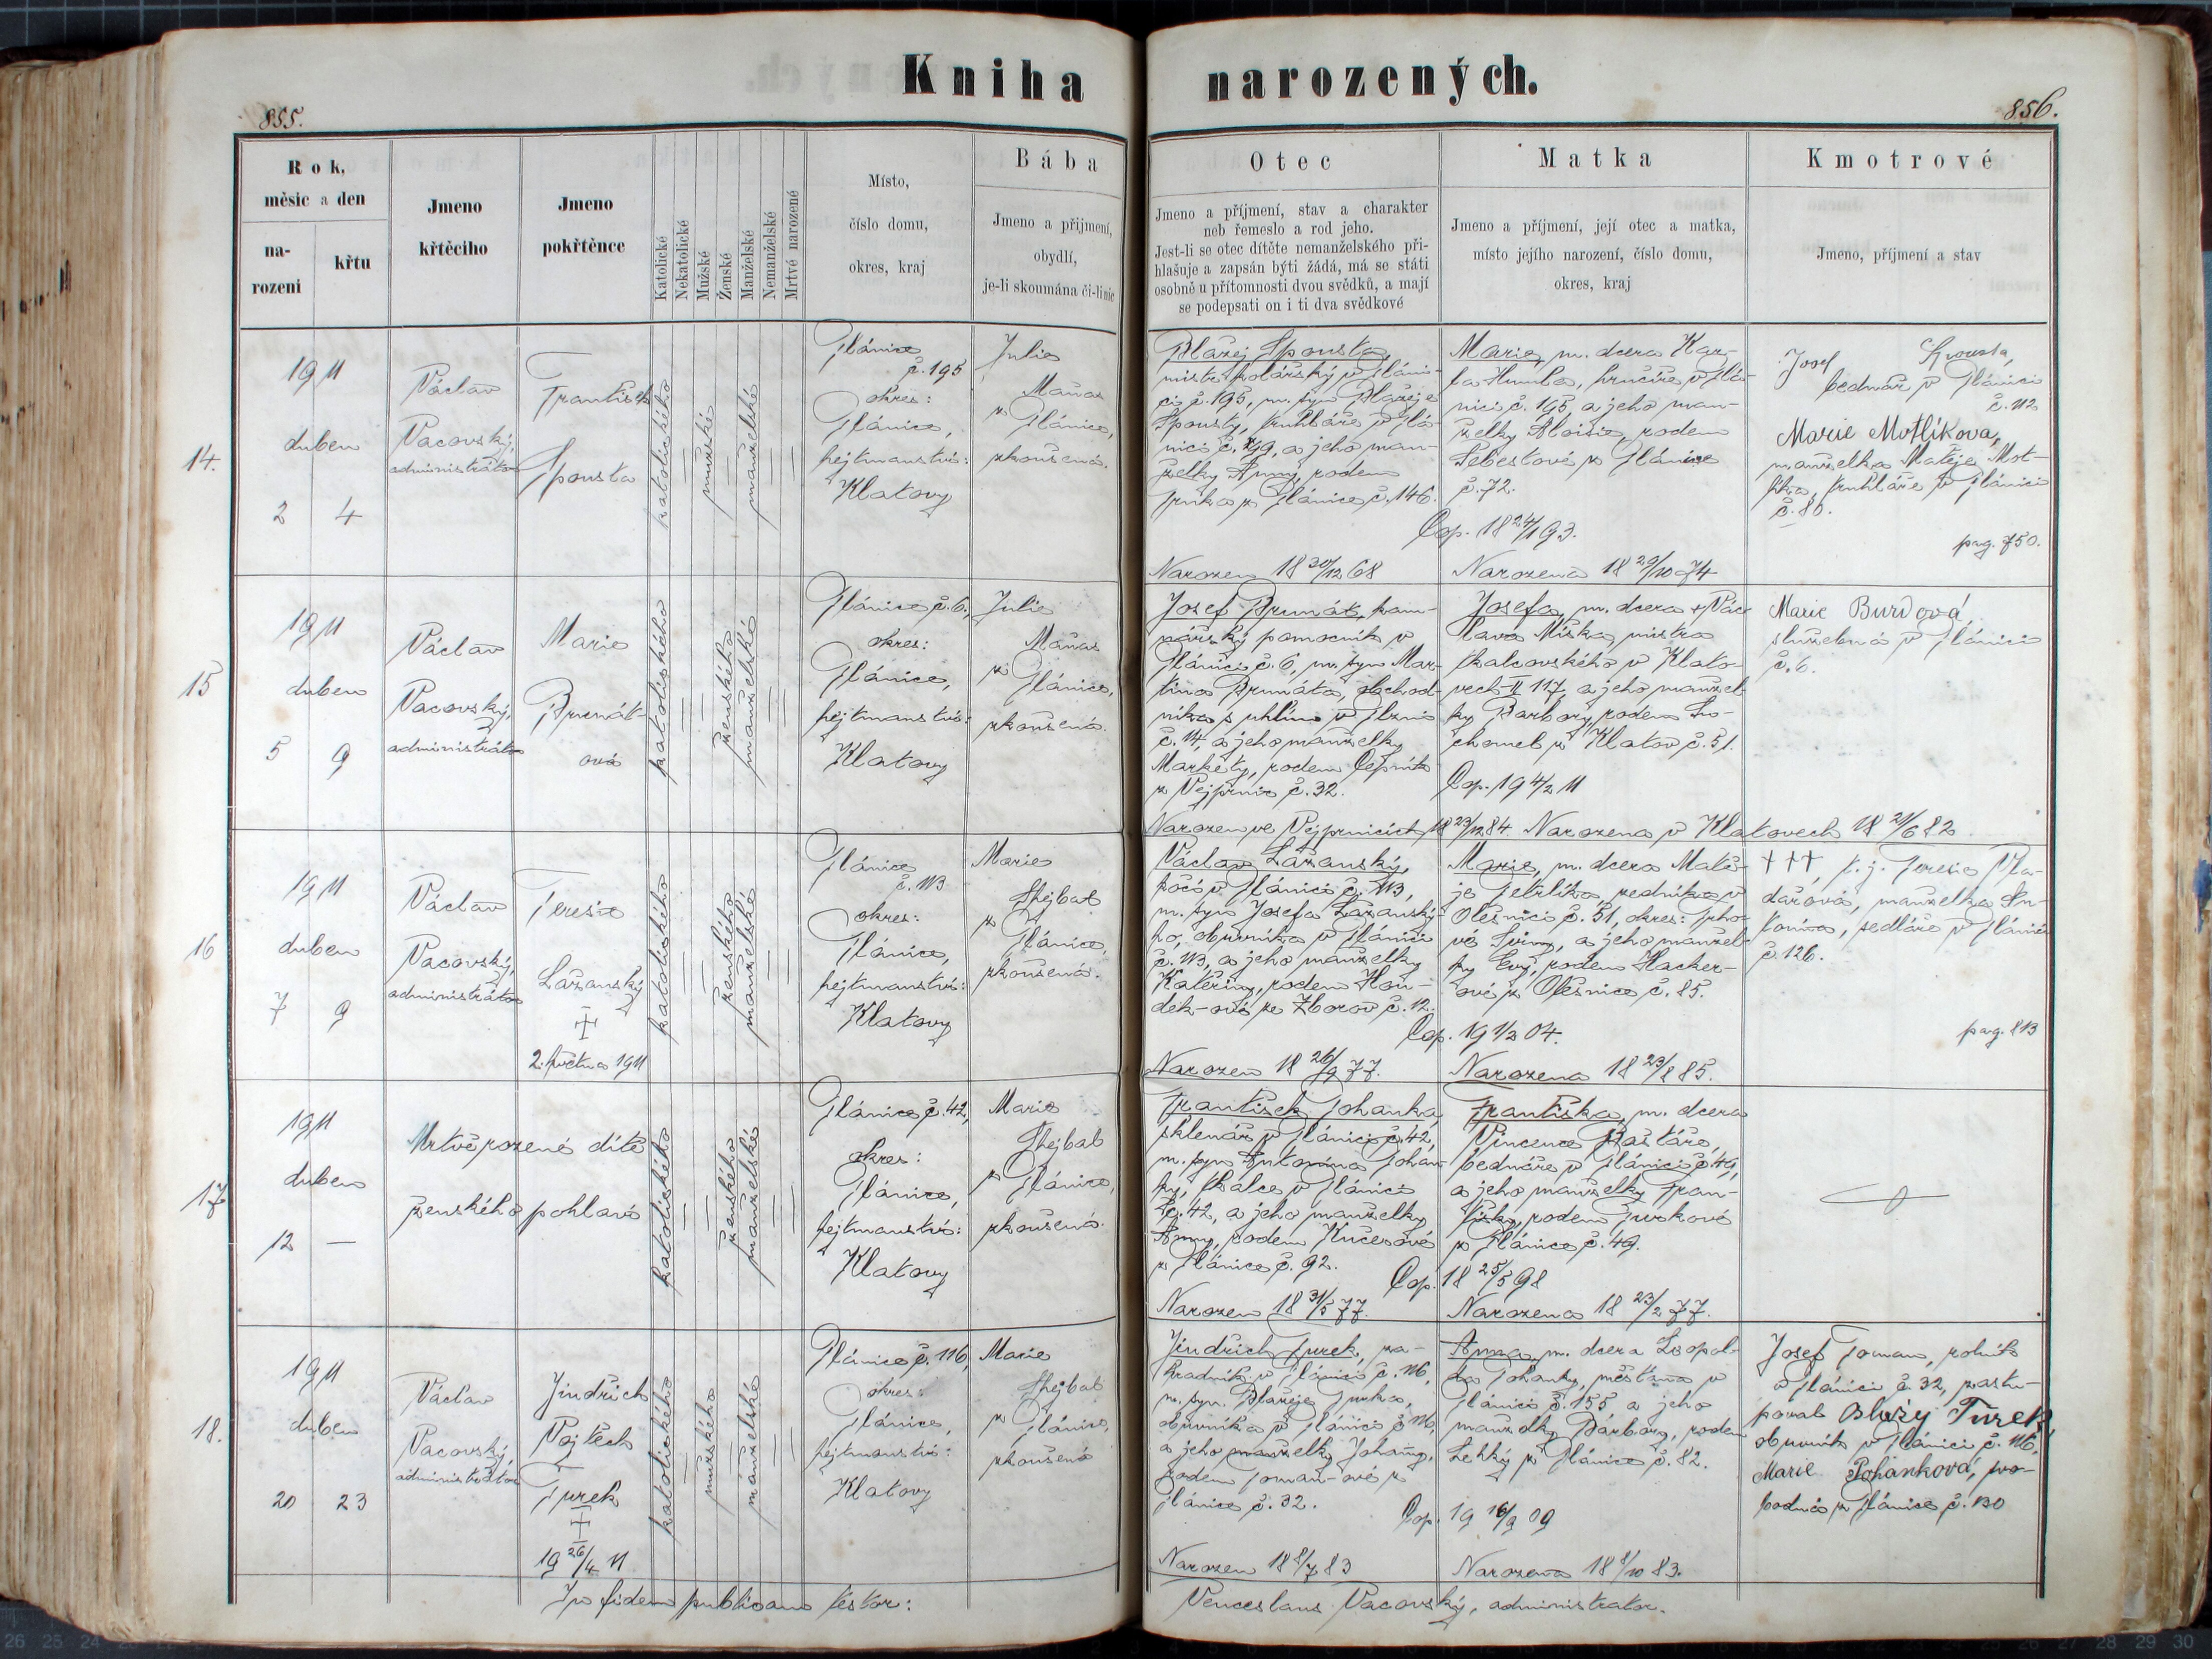 Kniha narozených.
855.
856.
Rok,
měsíc a den
na-
rozeni
křtu
Jmeno
křtěcího
Jmeno
pokřtěnce
Katolické
Nekatolické
Mužské
Ženské
Manželské
Nemanželské
Mrtvé narozené
Místo,
číslo domu,
okres, kraj
Bába
Jmeno a přijmení,
obydlí,
je-li skoumána či-li nic
Otec
Jmeno a příjmení, stav a charakter
neb řemeslo a rod jeho.
Jest-li se otec dítěte nemanželského při-
hlašuje a zapsán býti žádá, má se státi
osobně u přítomnosti dvou svědků, a mají
se podepsati on i ti dva svědkové
Matka
Jmeno a příjmení, její otec a matka,
místo jejího narození, číslo domu,
okres, kraj
Kmotrové
Jmeno, příjmení a stav
14.
1911
duben
2 4
Václav
Vacovský,
administrátor
František
Spousta
katolického
mužské
manželské
Plánice
č. 195
okres:
Plánice,
hejtmanství:
Klatovy
Julie
Maňas
z Plánice,
zkoušená.
Blažej Spousta,
mistr kolářský v Pláni-
ci č. 195, m. syn Blažeje
Spousty, truhláře v Plá-
nici č. 199, a jeho man-
želky Anny, rodem
z Plánice č. 146.
Narozen 18 30/12 68
Marie, m. dcera Kar-
la v Plá-
nici č. 195, a jeho man-
želky Aloisie, rodem
Šebestové z Plánice
č. 72.
Cop. 18 24/1 93.
Narozena 18 29/10 74
Josef Spousta,
bednář v Plánici
č. 112
Marie Motlíkova,
manželka Matěje Mot-
líka, truhláře v Plánici
č. 80.
pag. 750.
15
1911
duben
5 9
Václav
Vacovský,
administrátor
Marie
Brunát-
ová
katolického
ženského
manželské
Plánice č. 6.,
okres:
Plánice,
hejtmanství:
Klatovy
Julie
Maňas
z Plánice,
zkoušená.
Josef Brunát, kom-
pomocník v
Plánici č. 6, m. syn Mar-
tina Brunáta, obchod-
níka s uhlím v Plzni
č. 14, a jeho manželky
Markéty, rodem Čepník
z Vejprnic č. 32.
Narozen ve Vejprnicích 18 23/12 84
Josefa, m. dcera + Vác-
lava Míška, mistra
tkalcovského v Klato-
vech II 117, a jeho manžel-
ky Barbory, rodem Su-
chomel z Klatov č. 51.
Cop. 19 4/2 11
Narozena v Klatovech 18 21/6 82
Marie Burdová,
služebná v Plánici
č. 6.
16
1911
duben
7 9
Václav
Vacovský,
administrátor
Teresie
Lažanský
†
2. května 1911
katolického
ženského
manželské
Plánice
č. 113
okres:
Plánice,
hejtmanství:
Klatovy
Marie
Shejbal
z Plánice,
zkoušená.
Václav Lažanský,
kočí v Plánici č. 113,
m. syn Josefa Lažanský-
ho, obuvníka v Plánici
č. 113, a jeho manželky
Kateřiny, rodem Hou-
dek-ové ze Zborov č. 12.
Narozen 18 26/9 77.
Marie, m. dcera Matě-
je Jetelíka, zedníka v
Olešnici č. 51, okres: Trho-
vé Sviny, a jeho manžel-
ky Evy, rodem Hacker-
ové z Olešnice č. 85.
Cop. 19 1/2 04.
Narozena 18 23/8 85.
†††, t. j. Teresie Vla-
dařová, manželka An-
tonína, sedláře v Plánici
č. 126.
pag. 813
17
1911
duben
12 —
Mrtvěrozené dítě
ženského pohlaví
katolického
ženského
manželské
Plánice č. 42,
okres:
Plánice,
hejtmanství:
Klatovy
Marie
Shejbal
z Plánice,
zkoušená.
František Pohanka,
sklenář v Plánici č. 42,
m. syn Antonína Pohan-
ky, tkalce v Plánici
č. 42, a jeho manželky
Anny, rodem Kučerové
z Plánice č. 92.
Narozen 18 31/5 77.
Františka, m. dcera
Vincence Bastáře,
bednáře v Plánici č. 49,
a jeho manželky Fran-
tišky, rodem Turkové
z Plánice č. 49.
Cop. 18 25/5 98
Narozena 18 23/2 77.
18.
1911
duben
20 23
Václav
Vacovský,
administrátor
Jindřich
Vojtěch
Turek
†
19 26/4 11
katolického
mužského
manželské
Plánice č. 116,
okres:
Plánice,
hejtmanství:
Klatovy
Marie
Shejbal
z Plánice,
zkoušená
Jindřich Turek, za-
hradník v Plánici č. 116,
m. syn Blažeje Turka,
obuvníka v Plánici č. 116,
a jeho manželky Johanny,
rodem Toman-ové z
Plánice č. 32.
Narozen 18 8/7 83
Anna, m. dcera Leopol-
da Pohanky, měšťana v
Plánici č. 155 a jeho
manželky Barbory, rodem
Lehký z Plánice č. 82.
Cop. 19 16/9 09
Narozena 18 8/10 83.
Josef Toman, rolník
v Plánici č. 32, zastu-
poval Blažej Turek,
obuvník v Plánici č. 116,
Marie Pohanková, svo-
bodná z Plánice č. 130
In fidem publicam testor:
Venceslaus Vacovský, administrator.